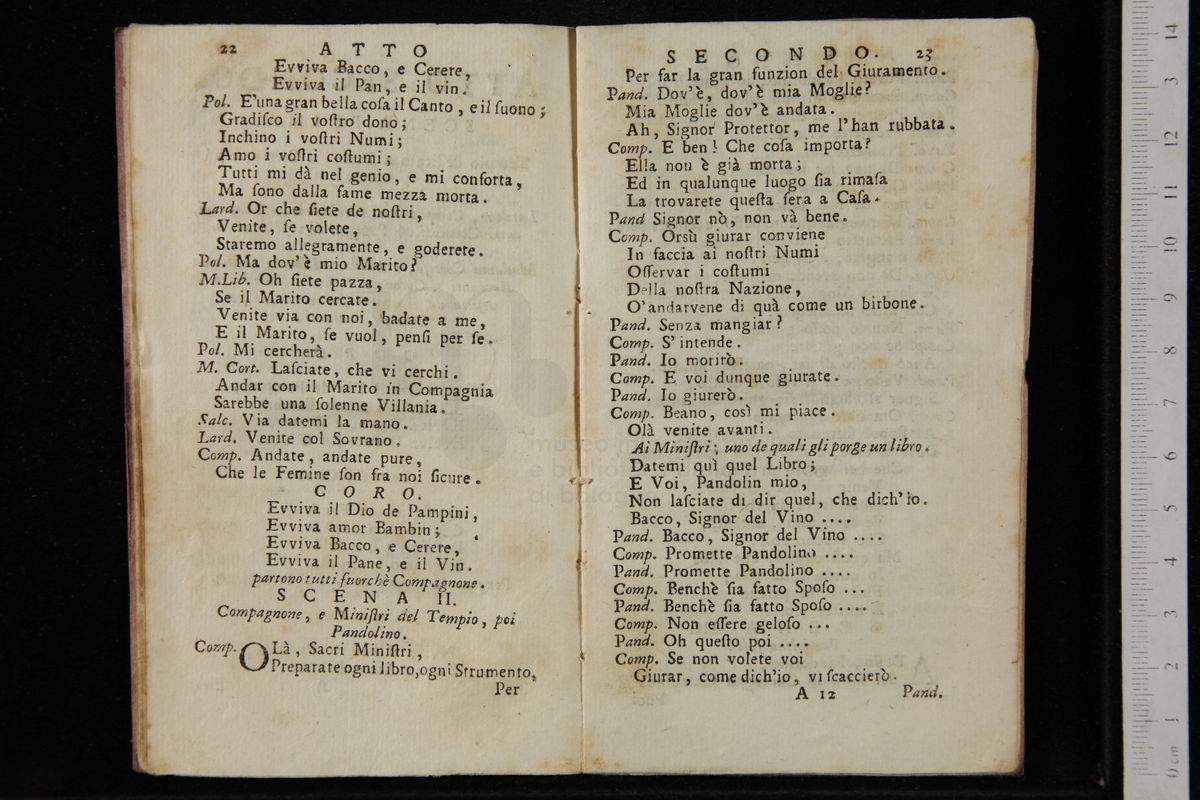 22 ATTO
Evviva Bacco, e Cerere,
Evviva il Pan, e il vin.
Pol. E'una gran bella coſa il Canto, e il ſuono;
Gradiſco il voſtro dono;
Inchino i voſtri Numi;
Amo i voſtri coſtumi;
Tutti mi dà nel genio, e mi conforta,
Ma ſono dalla fame mezza morta.
Lard. Or che ſiete de noſtri,
Venite, ſe volete,
Staremo allegramente, e goderete.
Pol. Ma dov'è mio Marito?
M.Lib. Oh ſiete pazza,
Se il Marito cercate.
Venite via con noi, badate a me,
E il Marito, ſe vuol, penſi per ſe.
Pol. Mi cercherà.
M. Cort. Laſciate, che vi cerchi.
Andar con il Marito in Compagnia
Sarebbe una ſolenne Villania.
Salc. Via datemi la mano.
Lard. Venite col Sovrano.
Comp. Andate, andate pure,
Che le Femine ſon fra noi ſicure.
CORO.
Evviva il Dio de Pampini,
Evviva amor Bambin;
Evviva Bacco, e Cerere,
Evviva il Pane, e il Vin.
partono tutti fuorchè Compagnone.
SCENA II.
Compagnone, e Miniſtri del Tempio, poi
Pandolino.
Comp. OLà, Sacri Miniſtri,
Preparate ogni libro, ogni Strumento,
Per
SECONDO. 23
Per far la gran funzion del Giuramento.
Pand. Dov'è, dov'è mia Moglie?
Mia Moglie dov'è andata.
Ah, Signor Protettor, me l'han rubbata.
Comp. E ben! Che coſa importa?
Ella non è già morta;
Ed in qualunque luogo ſia rimaſa
La trovarete queſta ſera a Caſa.
Pand Signor nò, non và bene.
Comp. Orsù giurar conviene
In faccia ai noſtri Numi
Oſſervar i coſtumi
Della noſtra Nazione,
O'andarvene di quà come un birbone.
Pand. Senza mangiar?
Comp. S'intende.
Pand. Io morirò.
Comp. E voi dunque giurate.
Pand. Io giurerò.
Comp. Beano, così mi piace.
Olà venite avanti.
Ai Miniſtri; uno de quali gli porge un libro.
Datemi quì quel Libro;
E Voi, Pandolin mio,
Non laſciate di dir quel, che dich'io.
Bacco, Signor del Vino ....
Pand. Bacco, Signor del Vino ....
Comp. Promette Pandolino ....
Pand. Promette Pandolino ....
Comp. Benchè ſia fatto Spoſo ...
Pand. Benchè ſia fatto Spoſo ....
Comp. Non eſſere geloſo ...
Pand. Oh queſto poi ....
Comp. Se non volete voi
Giurar, come dich'io, vi ſcaccierò.
A 12 Pand.